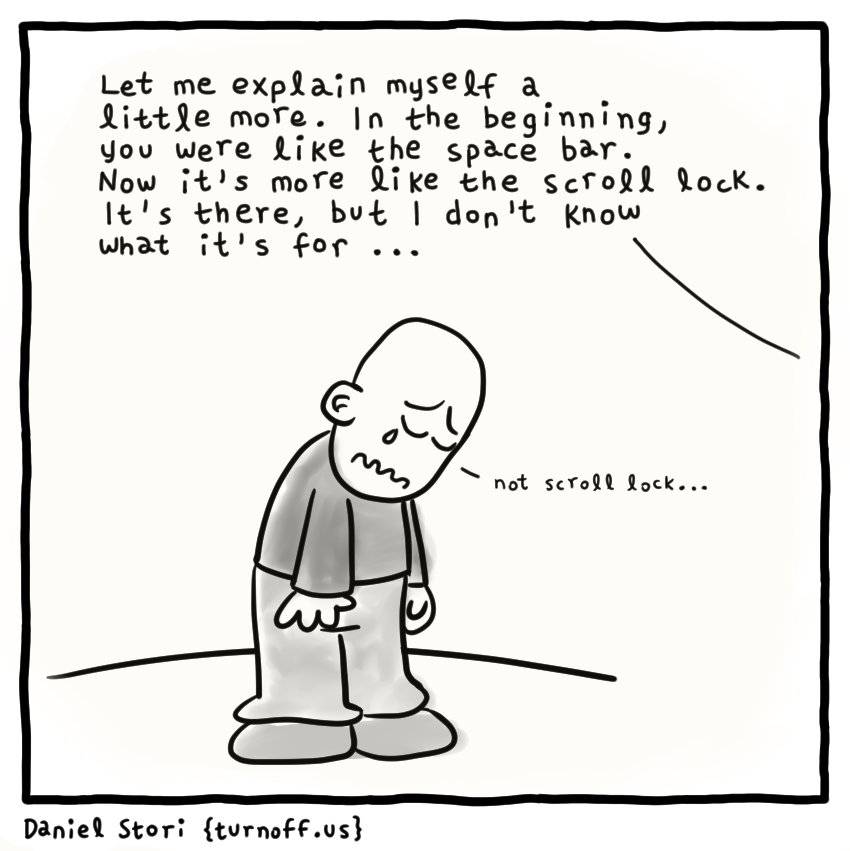 Let me explain myself a
little more. In the beginning,
you were like the space bar.
Now it's more like the scroll lock.
It's there, but I don't know
what it's for ...
not scroll lock...
Daniel Stori {turnoff.us}